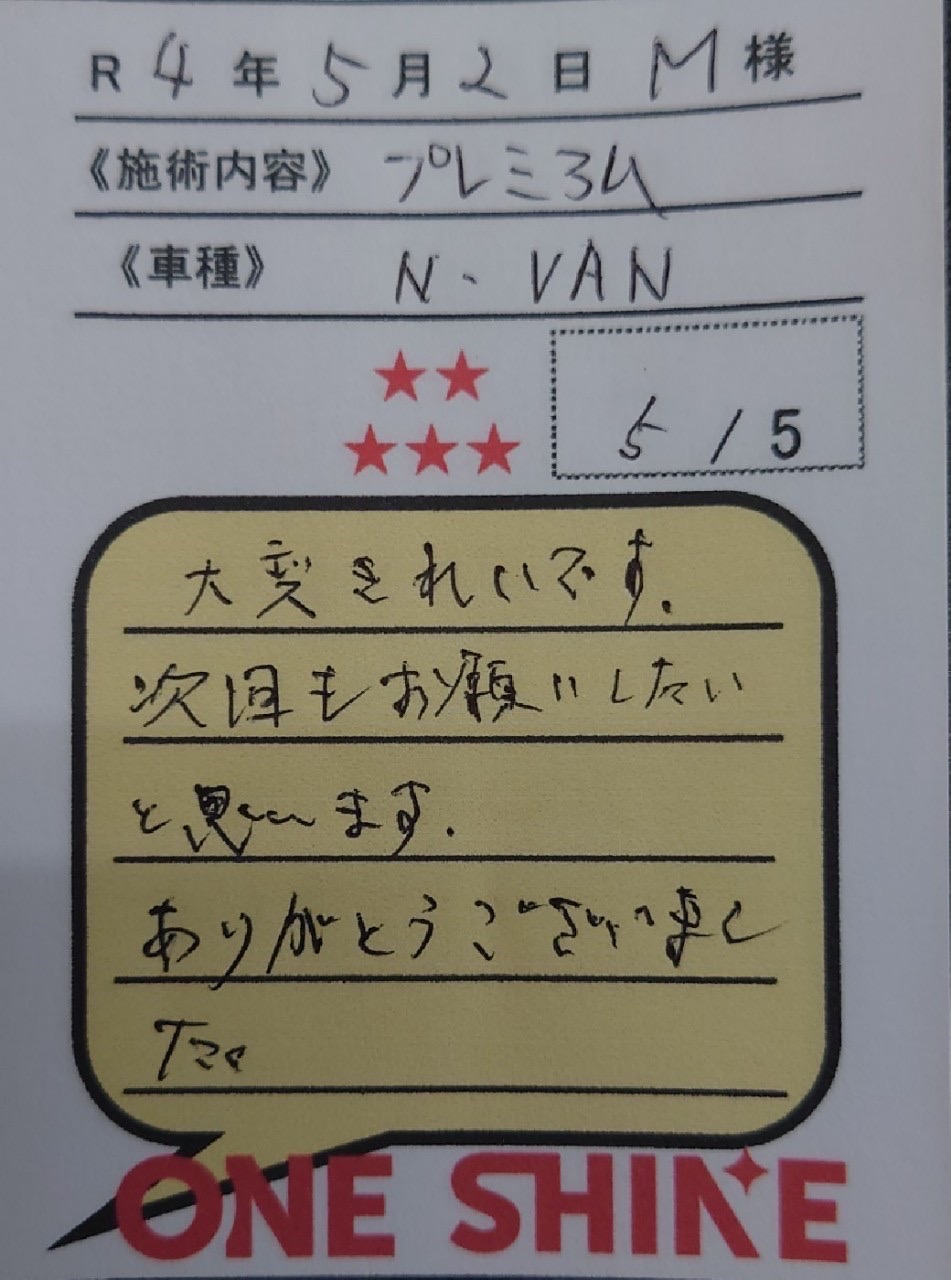 R 4 年 5 月 2 日 M 様
《施術内容》 プレミアム
《車種》 N-VAN
★★
★★★
5 / 5
大変きれいです.
次回もお願いしたい
と思います.
ありがとうございまし
た。
ONE SHINE